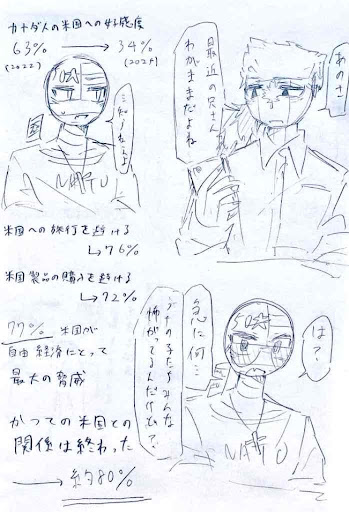 カナダ人の米国への好感度
63% → 34%
(2022)
(2025)
あのさ
最近の兄さん
わがまますぎだよね
NATO
米国への旅行を避ける
↳76%
米国製品の購入を避ける
↳72%
77% 米国が
自由経済にとって
最大の脅威
かつての米国との
関係は終わった
→約80%
は?
急に何…
怖がってるんだけど?
50☆
NATO